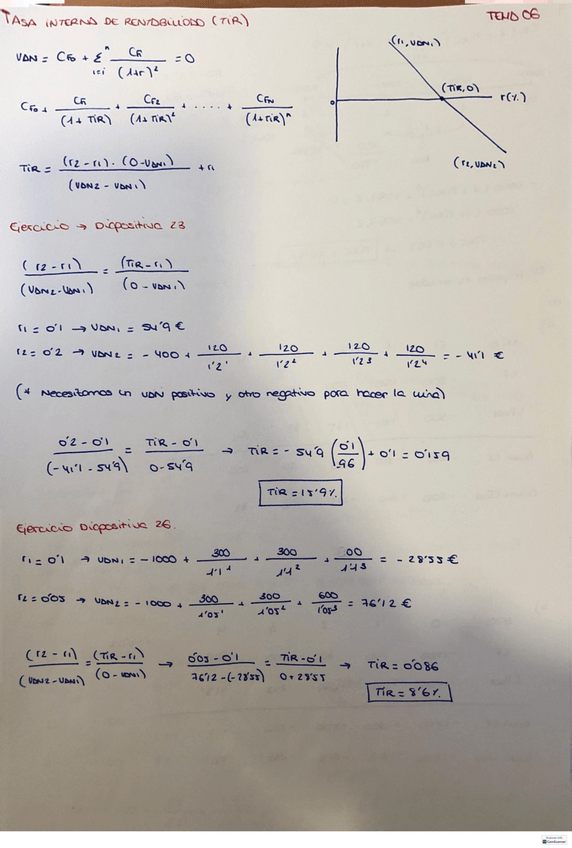 TASA INTERNA DE RENTABILIDAD (TIR)
TEMA 06
VAN = CF0 + Σ CFi / (1+r)^i = 0
n
i=i
(r1, VAN1)
(TIR, 0)
r(%)
0
(r2, VAN2)
CF0 + CF1 / (1 + TIR) + CF2 / (1 + TIR)² + ..... + CFN / (1 + TIR)^n
TIR = (r2 - r1) · (0 - VAN1) / (VAN2 - VAN1) + r1
Ejercicio → Diapositiva 23
(r2 - r1) / (VAN2 - VAN1) = (TIR - r1) / (0 - VAN1)
r1 = 0'1 → VAN1 = 54'9 €
r2 = 0'2 → VAN2 = - 400 + 120 / 1'2¹ + 120 / 1'2² + 120 / 1'2³ + 120 / 1'2⁴ = - 41'1 €
(* Necesitamos un VAN positivo y otro negativo para hacer la línea)
0'2 - 0'1 / (-41'1 - 54'9) = TIR - 0'1 / 0 - 54'9 → TIR = - 54'9 (0'1 / .96) + 0'1 = 0'159
TIR = 15'9%
Ejercicio Diapositiva 26.
r1 = 0'1 → VAN1 = - 1000 + 300 / 1'1¹ + 300 / 1'1² + 00 / 1'1³ = - 28'55 €
r2 = 0'05 → VAN2 = - 1000 + 300 / 1'05¹ + 300 / 1'05² + 600 / 1'05³ = 76'12 €
(r2 - r1) / (VAN2 - VAN1) = (TIR - r1) / (0 - VAN1) → 0'05 - 0'1 / 76'12 - (-28'55) = TIR - 0'1 / 0 + 28'55 → TIR = 0'086
TIR = 8'6%
CamScanner